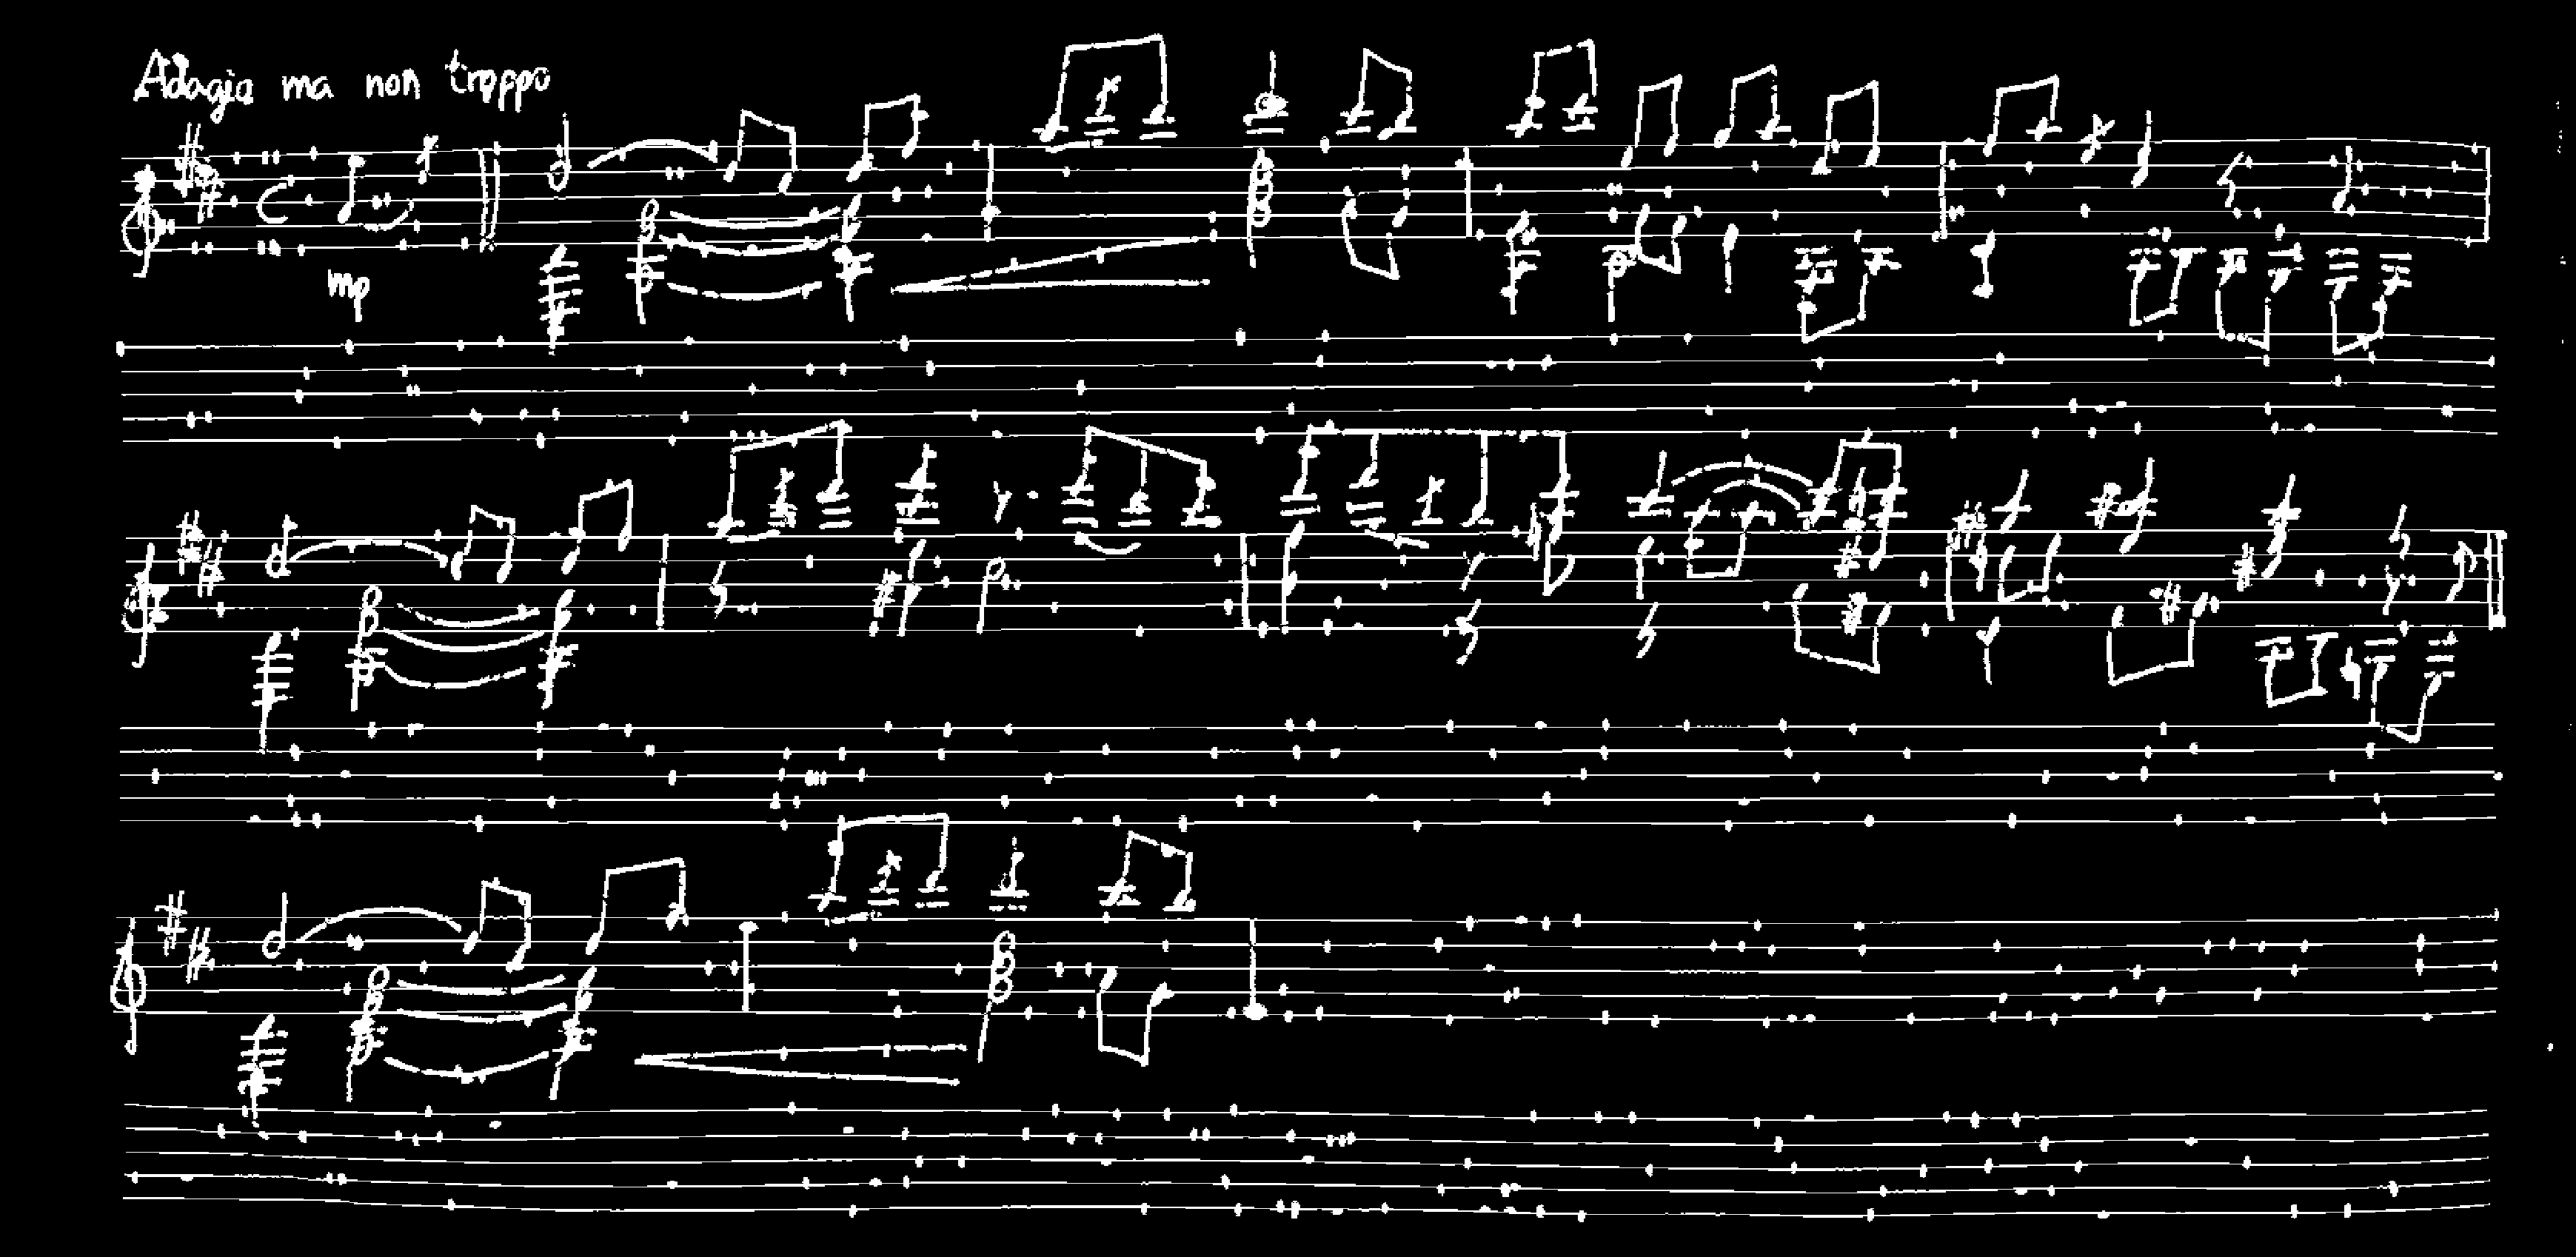 Adagia ma non troppo
mp